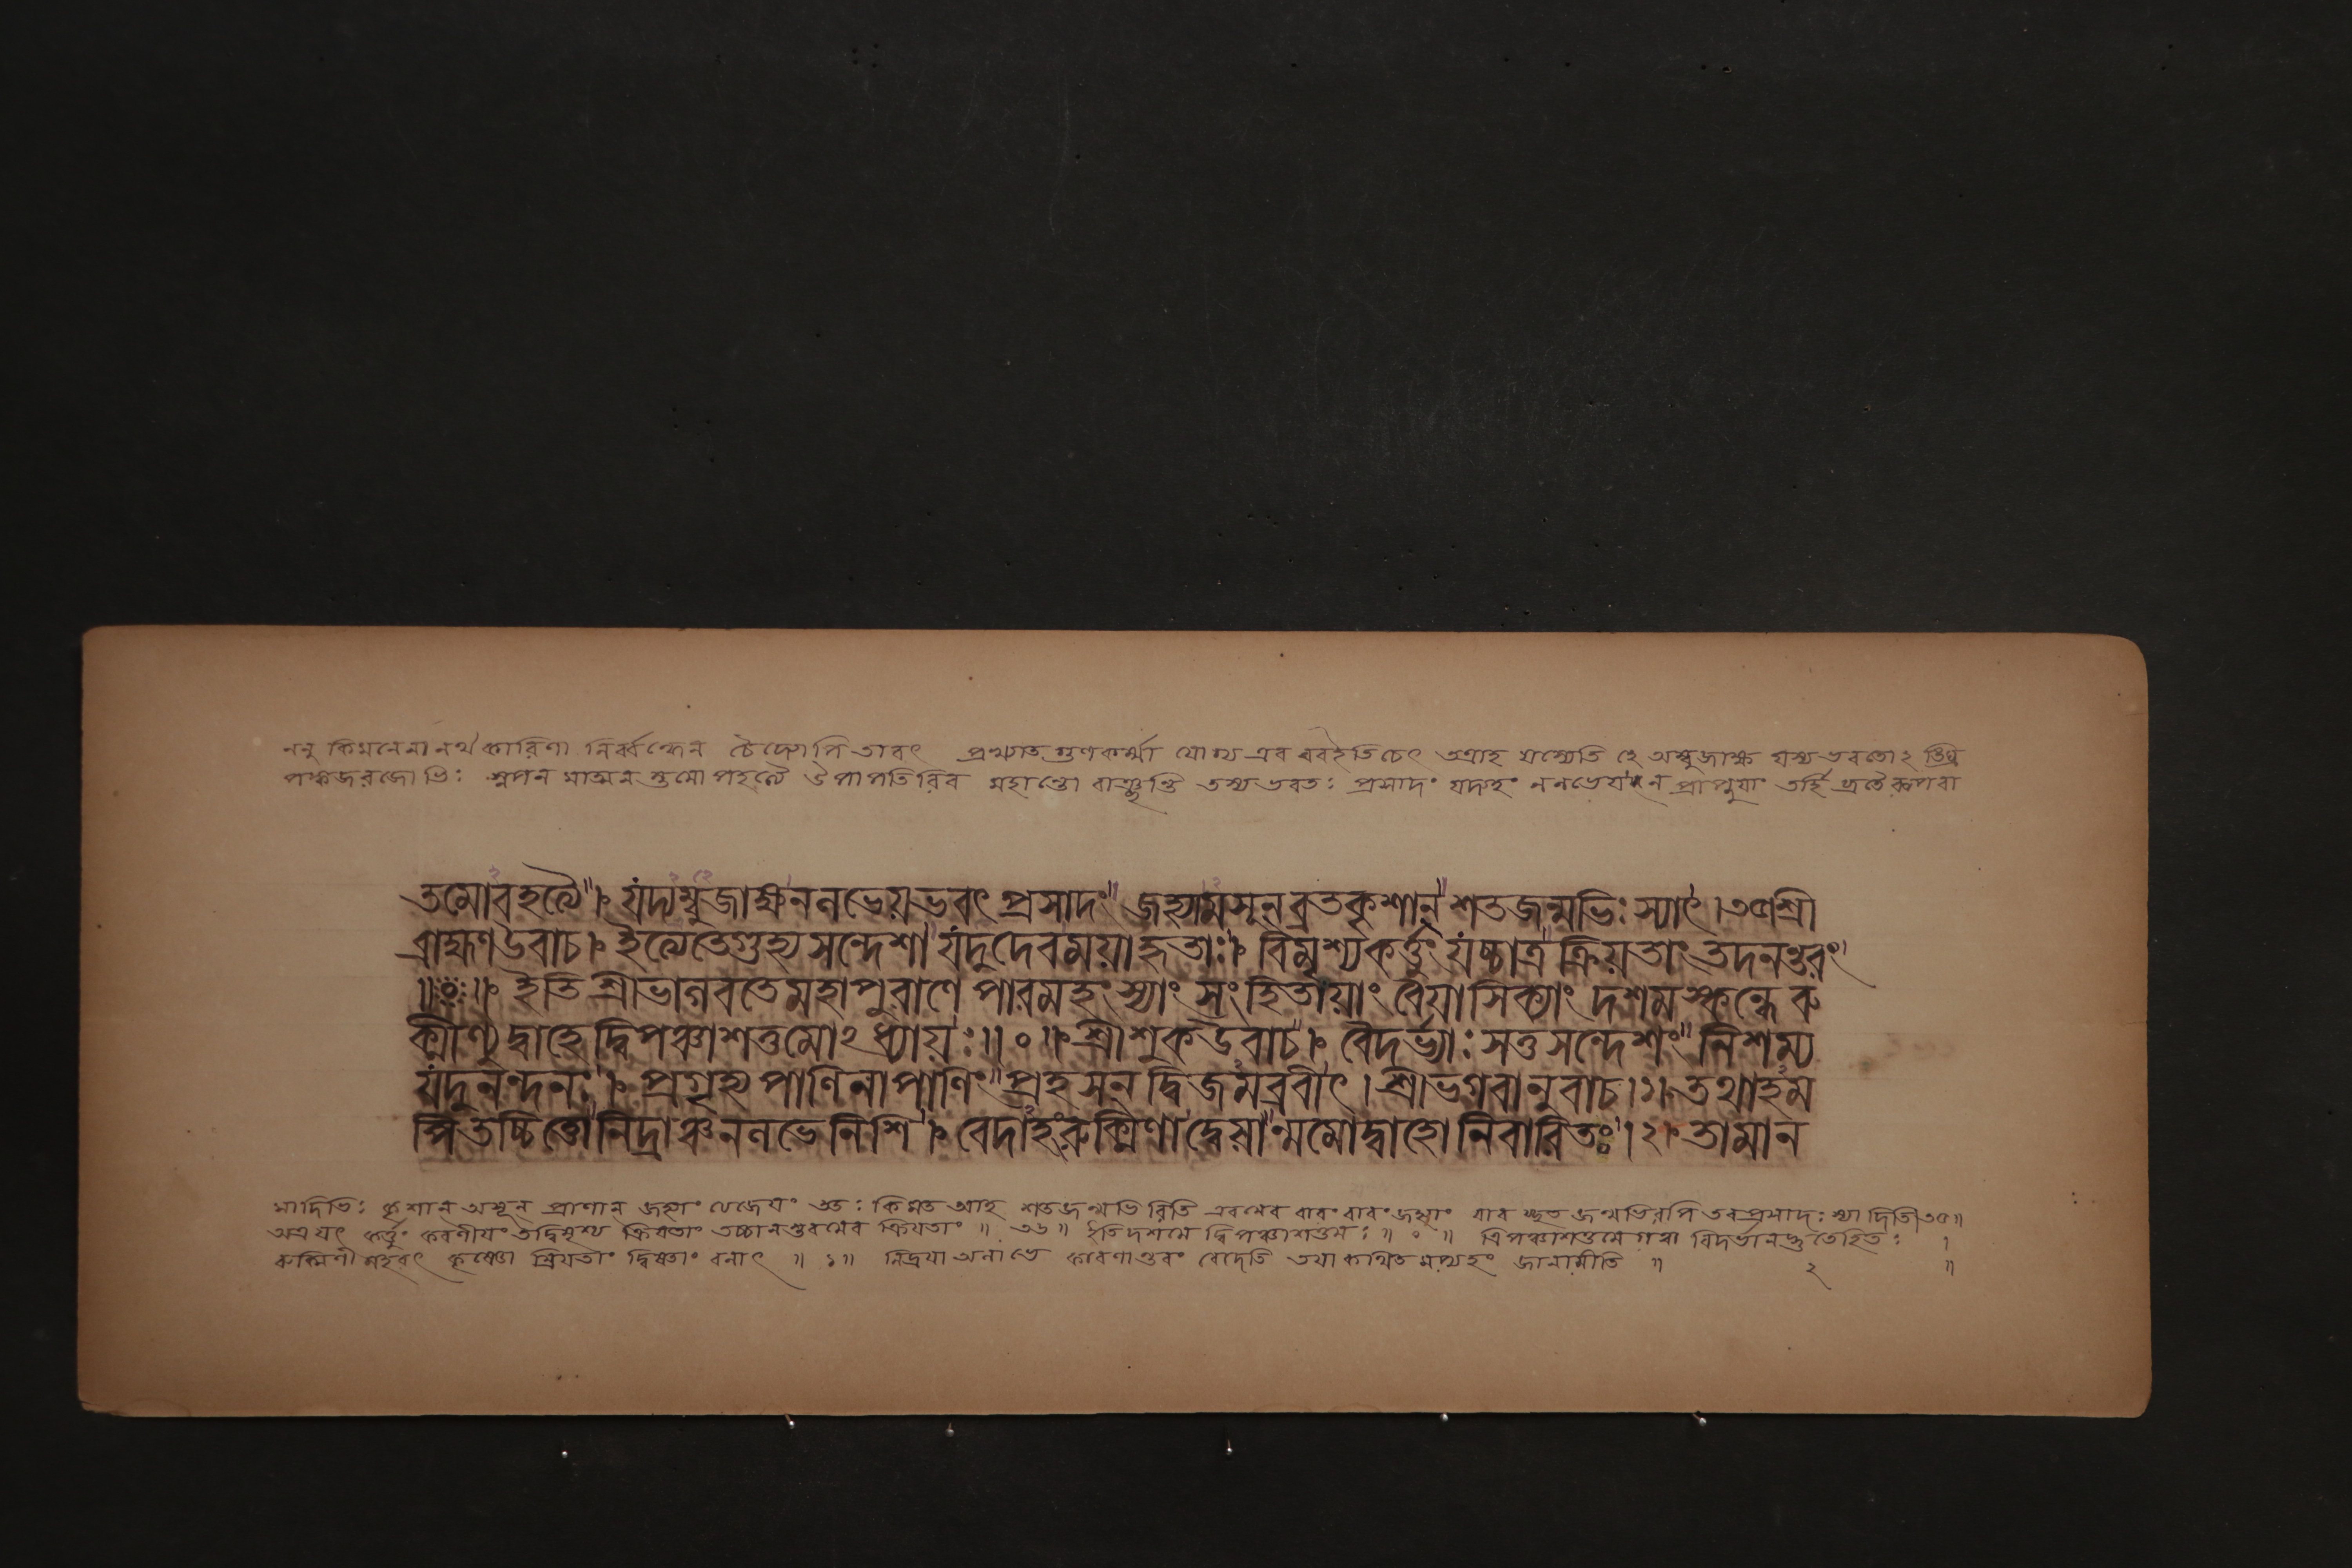 ননু কিমনেনানর্থকারিণা নির্ব্বন্ধেন চৈদ্যোপি তাবৎ প্রখ্যাতগুণকর্ম্মা যোগ্য এব বরইতিচেৎ তত্রাহ যস্যেতি হে অম্বুজাক্ষ যস্য ভবতোঽ ঙ্ঘ্রি
পঙ্কজরজোভিঃ স্নপন মাত্মন স্তমোপহত্যৈ উমাপতিরিব মহান্তো বাঞ্ছন্তি তস্য ভবতঃ প্রসাদং যদ্যহং ননভেয ন প্রাপ্নুযাং তর্হি ব্রতৈরূপবা
তমোঽবহত্যৈ । যর্দ্যম্বুজাক্ষননভেয়ভবৎ প্রসাদং জহ্যামসূন্ ব্রতকৃশান্ শতজন্মভিঃ স্যাৎ ।৩৫শ্রী
ব্রাহ্মণ উবাচ । ইত্যেতেগুহ্য সন্দেশা যদুদেবময়াহৃতাঃ । বিমৃশ্যকর্ত্তুং যচ্চাত্র ক্রিয়তাং তদনন্তরং
॥ঃ॥ ইতি শ্রীভাগবতেমহাপুরাণে পারমহংস্যাং সংহিতায়াং বৈয়াসিক্যাং দশমস্কন্ধে রু
ক্মীণ্যুদ্বাহে দ্বিপঞ্চাশত্তমোঽধ্যায়ঃ॥০॥ শ্রীশুক উবাচ । বৈদর্ভ্যাঃ সতুসন্দেশং নিশম্য
যদুনন্দনঃ । প্রগৃহ্য পাণিনাপাণিং প্রহসন্ দ্বিজমব্রবীৎ । শ্রীভগবানুবাচ ।১। তথাহম
পি তচ্চিত্তোনিদ্রাঞ্চননভেনিশি । বেদাহংরুক্মিণাদ্বেষান্মমোদ্বাহোনিবারিতঃ ।২। তামান
সাদিভিঃ কৃশান অসূন প্রাণান জহ্যাং ত্যজেযং ততঃ কিমত আহ শতজন্মভিরিতি এবমেব বারং বারং জহ্যাং যাব চ্ছত জন্মভিরপি তবপ্রসাদঃ স্যাদিতি৩৫॥
অত্র যৎ কর্ত্তুং করণীযং তদ্বিমৃশ্য ক্রিযতাং তচ্চানন্তরমেব ক্রিযতাং ॥ ৩৬ ॥ ইতিদশমে দ্বিপঞ্চাশত্তমঃ ॥ ০ ॥ ত্রিপঞ্চাশত্তমেগত্বা বিদর্ভানদ্ভুতৈহিতঃ ।
রুক্মিণী মহরৎ কৃষ্ণো মিষতাং দ্বিষতাং বলাৎ ॥ ১॥ নিদ্রযা অলাভে কারণান্তরং বেদেতি তযা কথিত মপ্যহং জানামীতি ॥ ২ ॥